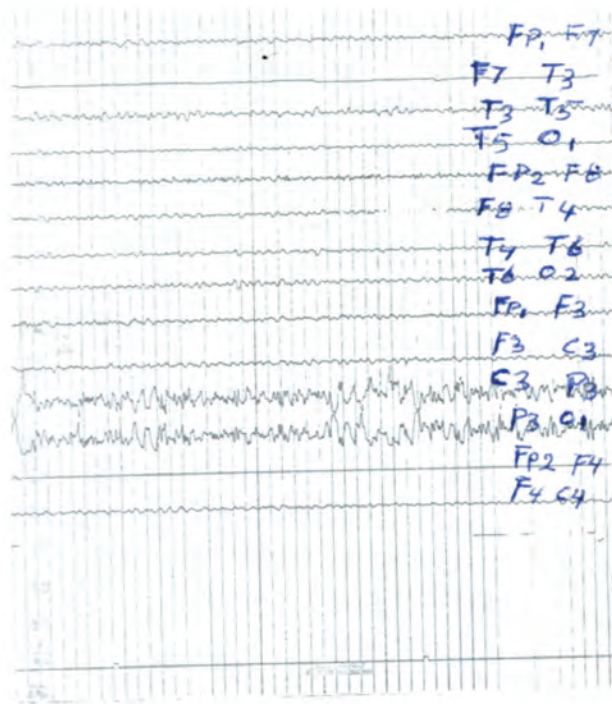 FP1 F7
F7 T3
T3 T5
T5 O1
FP2 F8
F8 T4
T4 T6
T6 O2
FP1 F3
F3 C3
C3 P3
P3 O1
FP2 F4
F4 C4